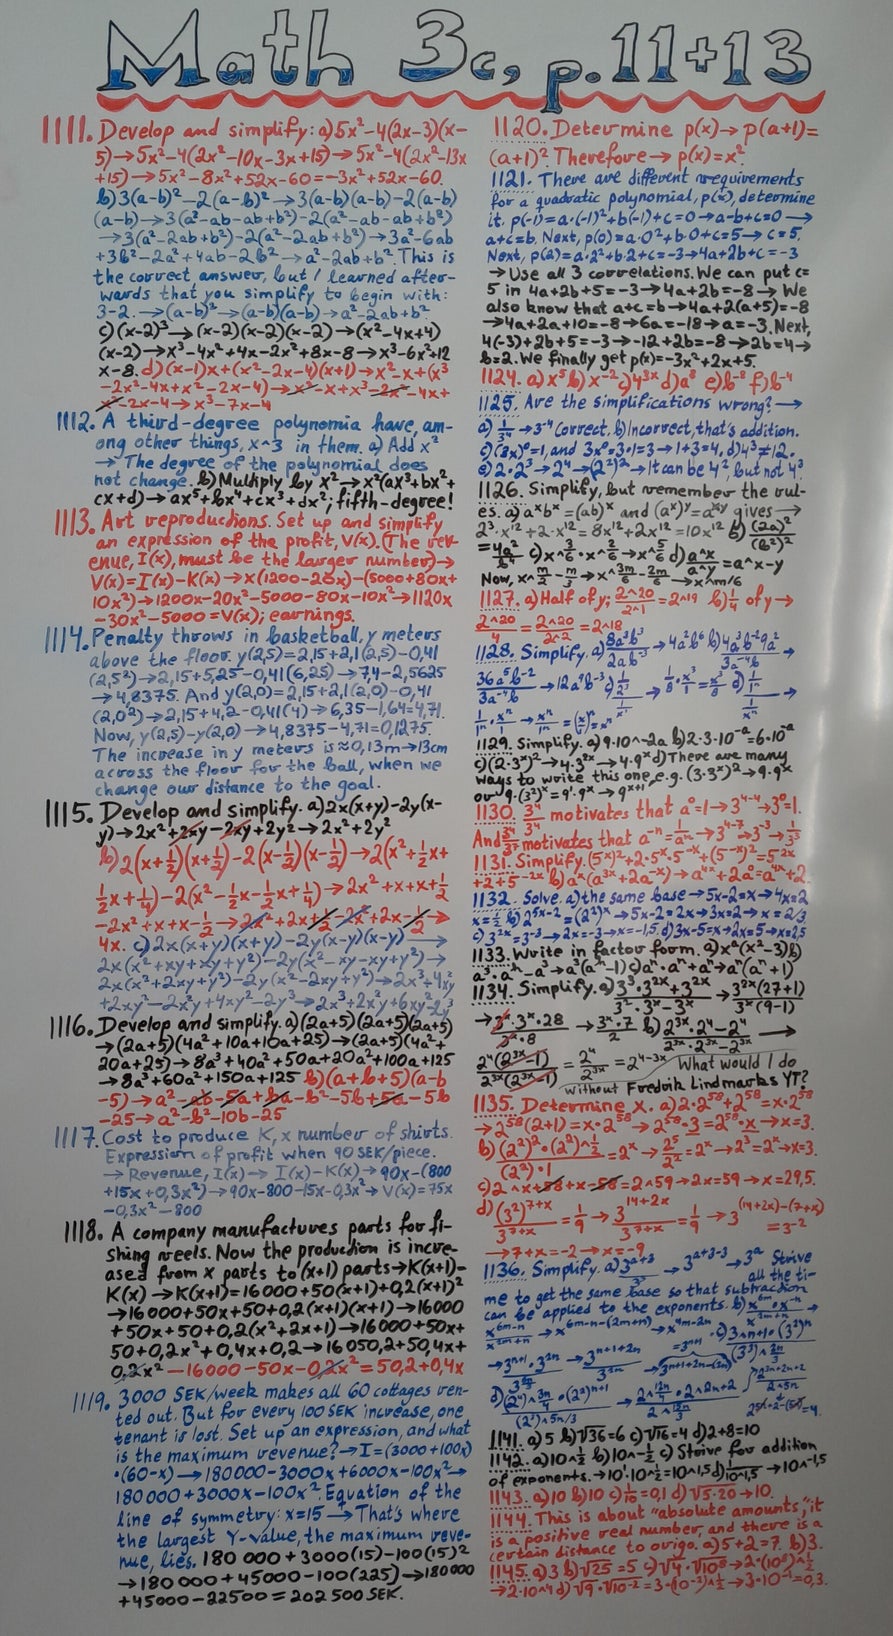 Math 3c, p.11+13
1111. Develop and simplify: a) 5x²-4(2x-3)(x-
5)→5x²-4(2x²-10x-3x+15)→5x²-4(2x²-13x
+15)→5x²-8x²+52x-60=-3x²+52x-60.
b) 3(a-b)²-2(a-b)²→3(a-b)(a-b)-2(a-b)
(a-b)→3(a²-ab-ab+b²)-2(a²-ab-ab+b²)
→3(a²-2ab+b²)-2(a²-2ab+b²)→3a²-6ab
+3b²-2a²+4ab-2b²→a²-2ab+b². This is
the correct answer, but I learned after-
wards that you simplify to begin with:
3-2.→(a-b)²→(a-b)(a-b)→a²-2ab+b².
c) (x-2)³→(x-2)(x-2)(x-2)→(x²-4x+4)
(x-2)→x³-4x²+4x-2x²+8x-8→x³-6x²+12
x-8. d) (x-1)x+(x²-2x-4)(x+1)→x²-x+(x³
-2x²-4x+x²-2x-4)→x²-x+x³-2x²-4x+
x²-2x-4→x³-7x-4
1112. A third-degree polynomia have, am-
ong other things, x^3 in them. a) Add x²
→ The degree of the polynomial does
not change. b) Multiply by x²→x²(ax³+bx²+
cx+d)→ax⁵+bx⁴+cx³+dx²; fifth-degree!
1113. Art reproductions. Set up and simplify
an expression of the profit, V(x). (The rev-
enue, I(x), must be the larger number)→
V(x)=I(x)-K(x)→x(1200-20x)-(5000+80x+
10x²)→1200x-20x²-5000-80x-10x²→1120x
-30x²-5000=V(x); earnings.
1114. Penalty throws in basketball, y meters
above the floor. y(2,5)=2,15+2,1(2,5)-0,41
(2,5²)→2,15+5,25-0,41(6,25)→7,4-2,5625
→4,8375. And y(2,0)=2,15+2,1(2,0)-0,41
(2,0²)→2,15+4,2-0,41(4)→6,35-1,64=4,71.
Now, y(2,5)-y(2,0)→4,8375-4,71=0,1275.
The increase in y meters is≈0,13m→13cm
across the floor for the ball, when we
change our distance to the goal.
1115. Develop and simplify. a) 2x(x+y)-2y(x-
y)→2x²+2xy-2xy+2y²→2x²+2y²
b) 2(x+½)(x+½)-2(x-½)(x-½)→2(x²+½x+
½x+¼)-2(x²-½x-½x+¼)→2x²+x+x+½
-2x²+x+x-½→2x²+2x+½-2x²+2x-½→
4x. c) 2x(x+y)(x+y)-2y(x-y)(x-y)→
2x(x²+xy+xy+y²)-2y(x²-xy-xy+y²)→
2x(x²+2xy+y²)-2y(x²-2xy+y²)→2x³+4x²y
+2xy²-2x²y+4xy²-2y³→2x³+2x²y+6xy²-2y³
1116. Develop and simplify. a) (2a+5)(2a+5)(2a+5)
→(2a+5)(4a²+10a+10a+25)→(2a+5)(4a²+
20a+25)→8a³+40a²+50a+20a²+100a+125
→8a³+60a²+150a+125 b) (a+b+5)(a-b
-5)→a²-ab-5a+ba-b²-5b+5a-5b
-25→a²-b²-10b-25
1117. Cost to produce K, x number of shirts.
Expression of profit when 90 SEK/piece.
→ Revenue, I(x)→I(x)-K(x)→90x-(800
+15x+0,3x²)→90x-800-15x-0,3x²→V(x)=75x
-0,3x²-800
1118. A company manufactures parts for fi-
shing reels. Now the production is incre-
ased from x parts to (x+1) parts→K(x+1)-
K(x)→K(x+1)=16000+50(x+1)+0,2(x+1)²
→16000+50x+50+0,2(x+1)(x+1)→16000
+50x+50+0,2(x²+2x+1)→16000+50x+
50+0,2x²+0,4x+0,2→16050,2+50,4x+
0,2x²-16000-50x-0,2x²=50,2+0,4x
1119. 3000 SEK/week makes all 60 cottages ren-
ted out. But for every 100 SEK increase, one
tenant is lost. Set up an expression, and what
is the maximum revenue?→I=(3000+100x)
·(60-x)→180000-3000x+6000x-100x²→
180000+3000x-100x². Equation of the
line of symmetry: x=15→That's where
the largest Y-value, the maximum reve-
nue, lies. 180 000+3000(15)-100(15)²
→180000+45000-100(225)→180000
+45000-22500=202 500 SEK.
1120. Determine p(x)→p(a+1)=
(a+1)². Therefore→p(x)=x².
1121. There are different requirements
for a quadratic polynomial, p(x), determine
it. p(-1)=a·(-1)²+b(-1)+c=0→a-b+c=0→
a+c=b. Next, p(0)=a·0²+b·0+c=5→c=5.
Next, p(2)=a·2²+b·2+c=-3→4a+2b+c=-3
→Use all 3 correlations. We can put c=
5 in 4a+2b+5=-3→4a+2b=-8→We
also know that a+c=b→4a+2(a+5)=-8
→4a+2a+10=-8→6a=-18→a=-3. Next,
4(-3)+2b+5=-3→-12+2b=-8→2b=4→
b=2. We finally get p(x)=-3x²+2x+5.
1124. a) x⁵ b) x⁻² c) 4³ˣ d) a⁸ e) b⁻⁸ f) b⁻⁴
1125. Are the simplifications wrong?→
a) 1/3⁴→3⁻⁴ Correct. b) Incorrect, that's addition.
c) (3x)⁰=1, and 3x⁰=3·1=3→1+3=4. d) 4³≠12.
e) 2·2³→2⁴→(2²)²→It can be 4², but not 4³.
1126. Simplify, but remember the rul-
es. a) aˣbˣ=(ab)ˣ and (aˣ)ʸ=aˣʸ gives→
2³·x¹²+2·x¹²=8x¹²+2x¹²=10x¹² b) (2a)²/(b²)²
=4a²/b⁴ c) x^3/6·x^2/6→x^5/6 d) a^x/a^y=a^x-y
Now, x^m/2-m/3→x^3m/6-2m/6→x^m/6
1127. a) Half of y; 2^20/2^1=2^19 b) ¼ of y→
2^20/4=2^20/2^2=2^18
1128. Simplify. a) 8a³b³/2ab⁻³→4a²b⁶ b) 4a³b⁻²9a²/3a⁻⁴b→
36a⁵b⁻²/3a⁻⁴b→12a⁹b⁻³ c)
1129. Simplify. a) 9·10^-2a b) 2·3·10⁻ᵃ=6·10⁻ᵃ
c) (2·3ˣ)²→4·3²ˣ→4·9ˣ d) There are many
ways to write this one, e.g. (3·3ˣ)²→9·9ˣ
or 9·(3²)ˣ=9¹·9ˣ→9ˣ⁺¹
1130. 3⁴/3⁴ motivates that a⁰=1→3⁴⁻⁴→3⁰=1.
And 3⁴/3⁷ motivates that a⁻ⁿ=1/aⁿ→3⁴⁻⁷→3⁻³→1/3³
1131. Simplify. (5ˣ)²+2·5ˣ·5⁻ˣ+(5⁻ˣ)²=5²ˣ
+2+5⁻²ˣ b) aˣ(a³ˣ+2a⁻ˣ)→a⁴ˣ+2a⁰=a⁴ˣ+2.
1132. Solve. a) the same base→5x-2=x→4x=2
x=½ b) 2⁵ˣ⁻²=(2²)ˣ→5x-2=2x→3x=2→x=2/3
c) 3²ˣ=3⁻³→2x=-3→x=-1,5. d) 3x-5=x→2x=5→x=2,5
1133. Write in factor form. a) xᵃ(x²-3) b)
a³·aⁿ-a³→a³(aⁿ-1) c) aⁿ·aⁿ+aⁿ→aⁿ(aⁿ+1)
1134. Simplify. a) 3³·3²ˣ+3²ˣ/3²·3ˣ-3ˣ→3²ˣ(27+1)/3ˣ(9-1)
→3ˣ·3ˣ·28/3ˣ·8→3ˣ·7/2 b) 2³ˣ·2⁴-2⁴/2³ˣ·2³ˣ-2³ˣ→
2⁴(2³ˣ-1)/2³ˣ(2³ˣ-1)=2⁴/2³ˣ=2⁴⁻³ˣ What would I do
without Fredrik Lindmarks YT?
1135. Determine x. a) 2·2⁵⁸+2⁵⁸=x·2⁵⁸
→2⁵⁸(2+1)=x·2⁵⁸→2⁵⁸·3=2⁵⁸·x→x=3.
b) (2²)²·(2²)^½/(2²)·1=2ˣ→2⁵/2²=2ˣ→2³=2ˣ→x=3.
c) 2^x+58+x-58=2^59→2x=59→x=29,5.
d) (3²)⁷⁺ˣ/3⁷⁺ˣ=1/9→3¹⁴⁺²ˣ/3⁷⁺ˣ=1/9→3⁽¹⁴⁺²ˣ⁾⁻⁽⁷⁺ˣ⁾=3⁻²
→7+x=-2→x=-9
1136. Simplify. a) 3ᵃ⁺³/3³→3ᵃ⁺³⁻³→3ᵃ Strive
all the ti-
me to get the same base so that subtraction
can be applied to the exponents. b)
x⁶ᵐ⁻ⁿ/x²ᵐ⁺ⁿ→x⁶ᵐ⁻ⁿ⁻⁽²ᵐ⁺ⁿ⁾→x⁴ᵐ⁻²ⁿ c)
1141. a) 5 b) √36=6 c) √16=4 d) 2+8=10
1142. a) 10^½ b) 10^-½ c) Strive for addition
of exponents.→10¹·10^½=10^1,5 d) 1/10^1,5→10^-1,5
1143. a) 10 b) 10 c) 1/10=0,1 d) √5·20→10.
1144. This is about "absolute amounts", it
is a positive real number, and there is a
certain distance to origo. a) 5+2=7. b) 3.
1145. a) 3 b) √25=5 c) √4·√10⁸→2·(10⁸)^½
→2·10^4 d) √9·√10⁻²=3·(10⁻²)^½→3·10⁻¹=0,3.